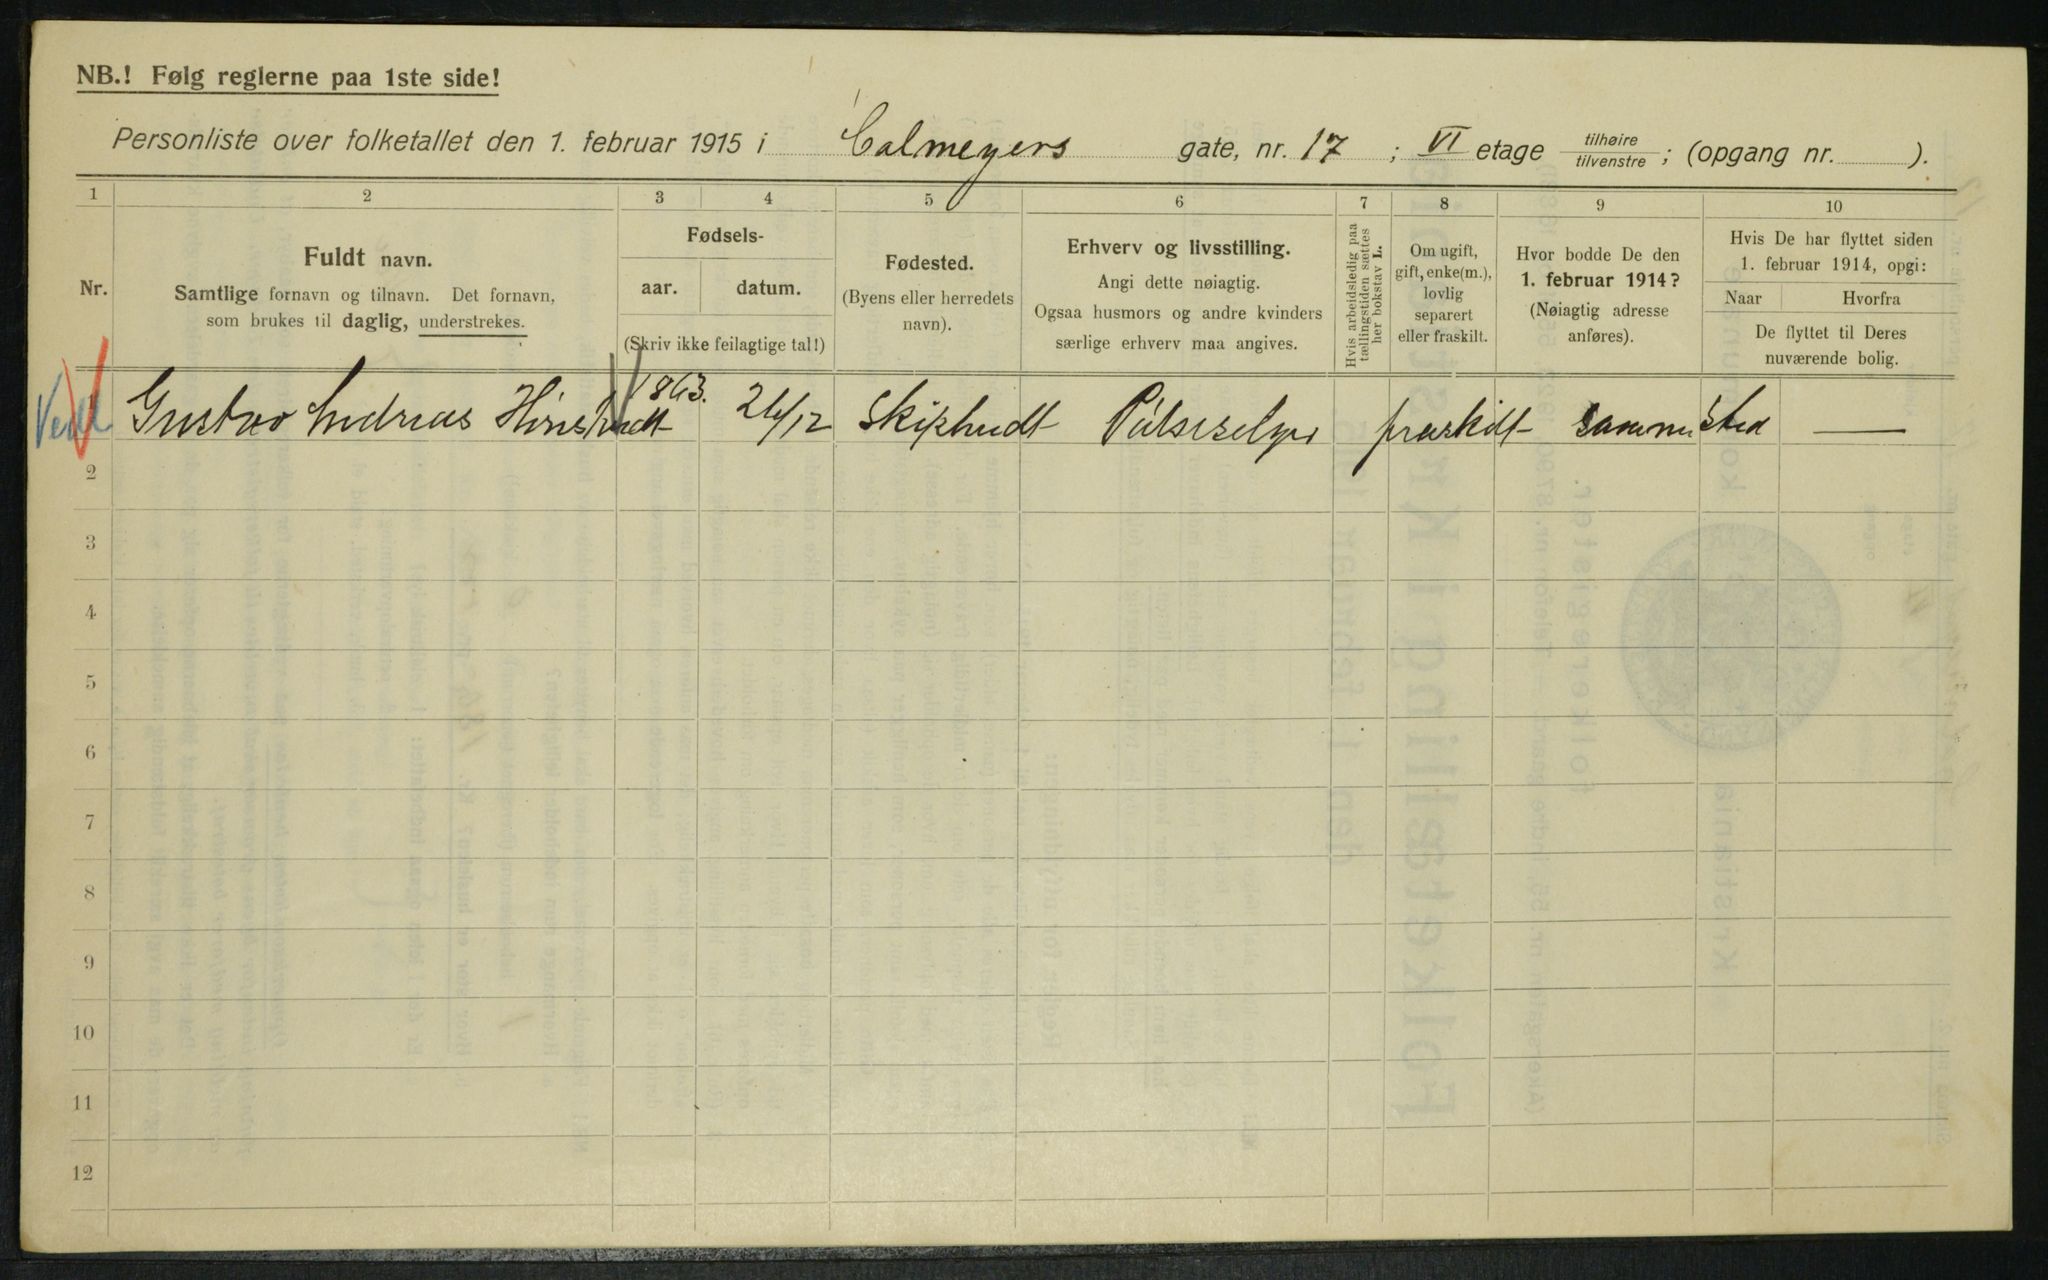 NB.! Følg reglerne paa 1ste side!
Personliste over folketallet den 1. februar 1915 i Calmeyers gate, nr. 17; VI etage tilhøire tilvenstre; (opgang nr. ).
1 2 3 4 5 6 7 8 9 10
Nr.
Fuldt navn.
Samtlige fornavn og tilnavn. Det fornavn,
som brukes til daglig, understrekes.
Fødsels-
aar. datum.
(Skriv ikke feilagtige tal!)
Fødested.
(Byens eller herredets
navn).
Erhverv og livsstilling.
Angi dette nøiagtig.
Ogsaa husmors og andre kvinders
særlige erhverv maa angives.
Hvis arbeidsledig paa
tællingstiden sættes
her bokstav L.
Om ugift,
gift, enke(m.),
lovlig
separert
eller fraskilt.
Hvor bodde De den
1. februar 1914?
(Nøiagtig adresse
anføres).
Hvis De har flyttet siden
1. februar 1914, opgi:
Naar Hvorfra
De flyttet til Deres
nuværende bolig.
Gustav Andreas 1863. Pölseselger fraskilt samme sted —
2
3
4
5
6
7
8
9
10
11
12